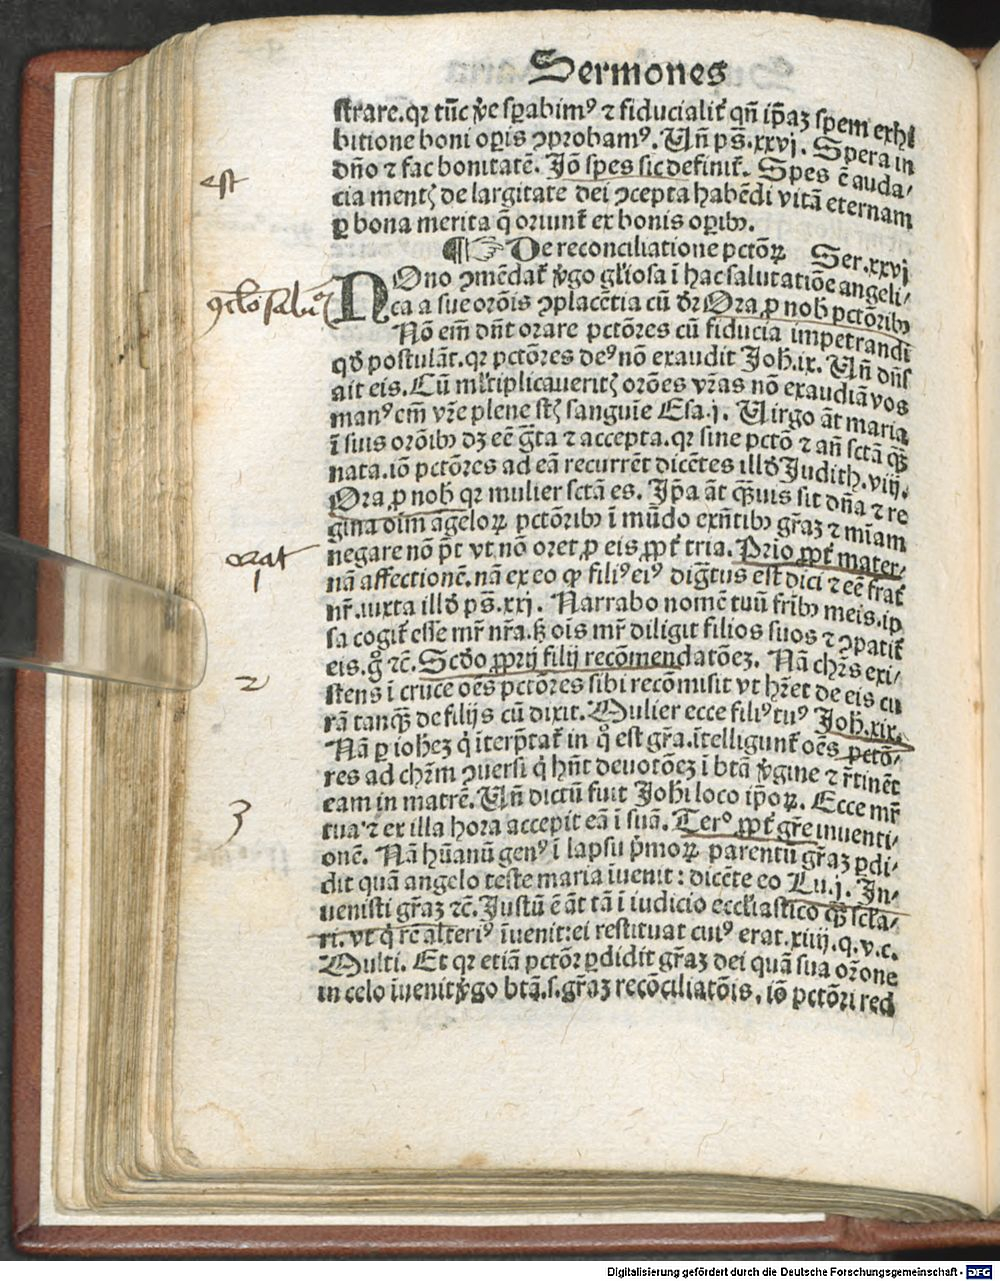 Sermones
strare.qr tūc ꝟe sꝑabimꝰ ⁊ fiducialit̃ qñ ip̄aꝫ spem exhi
bitione boni oꝑis ꝯprobamꝰ. Vñ ps̄.xxvj. Spera in
dño ⁊ fac bonitatē. Jō spes sic definit̃. Spes ē auda⸗
cia mentꝭ de largitate dei ꝯcepta habēdi vitā eternam
ꝑ bona merita q̄ oriunt̃ ex bonis oꝑibꝰ.
¶☞ De reconciliatione pctōꝝ Ser.xxvj
est
NOno ꝯmēdat̃ ꝟgo gl'iosa ī hac salutatiōe angeli⸗
ca a sue orōis ꝯplacētia cū dr̄ Ora ꝓ nob̄ pctōribꝰ
Nō em̄ dn̄t orare pctōres cū fiducia impetrandi
qd̓ postulāt.qr pctōres deꝰ nō exaudit Joh̄.ix. Vñ dñs
ait eis. Cū ml'tiplicaueritꝭ orōes vr̄as nō exaudiā vos
manꝰ em̄ vr̄e plene st̄ꝭ sanguīe Esa.j. Virgo āt maria
ī suis orōibꝰ dꝫ eē gr̄ta ⁊ accepta.qr sine pctō ⁊ añ sctā qꝫ̄
nata.iō pctōres ad eā recurrēt dicētes illd̓ Judith.viij.
Ora ꝓ nob̄ qr mulier sctā es. Ip̄a āt qꝫ̄uis sit dña ⁊ re
gina oīm āgeloꝝ pctōribꝰ ī mūdo exñtibꝰ gr̄aꝫ ⁊ mīam
negare nō p̄t vt nō oret ꝓ eis ꝓpt̃ tria. Prīo ꝓpt̃ mater⸗
nā affectionē.nā ex eo ꝙ filiꝰ eiꝰ dign̄tus est dici ⁊ eē frat̃
nr̄.iuxta illd̓ ps̄.xxj. Narrabo nomē tuū fr̄ibꝰ meis.ip
sa cogit̃ esse mr̄ nr̄a.sꝫ oīs mr̄ diligit filios suos ⁊ ꝯpatit̃
eis.gͦ ⁊c̄. Scd̓o ꝓprij filij recōmendatōeꝫ. Nā chr̄s exi⸗
stens ī cruce oēs pctōres sibi recōmisit vt hr̄et de eis cu
rā tanqꝫ̄ de filijs cū dixit. Mulier ecce filiꝰ tuꝰ Joh̄.xix.
Nā ꝑ ioheꝫ q̇ īterp̄tat̃ in qͦ est gr̄a.ītelligunt̃ oēs pctō⸗
res ad chr̄m ꝯuersi q̇ hn̄t deuotōeꝫ ī btā ꝟgine ⁊ r̄tinēt
eam in matrē. Vñ dictū fuit Joh̄i loco ip̄oꝝ. Ecce mr̄
tua.⁊ ex illa hora accepit eā ī suā. Tercͦ ꝓpt̃ gr̄e inuenti⸗
onē. Nā hūanū genꝰ ī lapsu p̄moꝝ parentū gr̄aꝫ ꝑdi⸗
dit quā angelo teste maria īuenit : dicēte eo Lu.j. In⸗
uenisti gr̄aꝫ ⁊c̄. Justū ē āt tā ī iudicio eccl'iastico qꝫ̄ scl'a⸗
ri.vt q̇ rē alteriꝰ īuenit:ei restituat cuiꝰ erat.xiiij.q.v.c.
Multi. Et qr etiā pctōr ꝑdidit gr̄aꝫ dei quā sua orōne
in celo īuenit ꝟgo btā.s.gr̄aꝫ recōciliatōis, iō pctōri red
orat
1
2
3
Digitalisierung gefördert durch die Deutsche Forschungsgemeinschaft - DFG